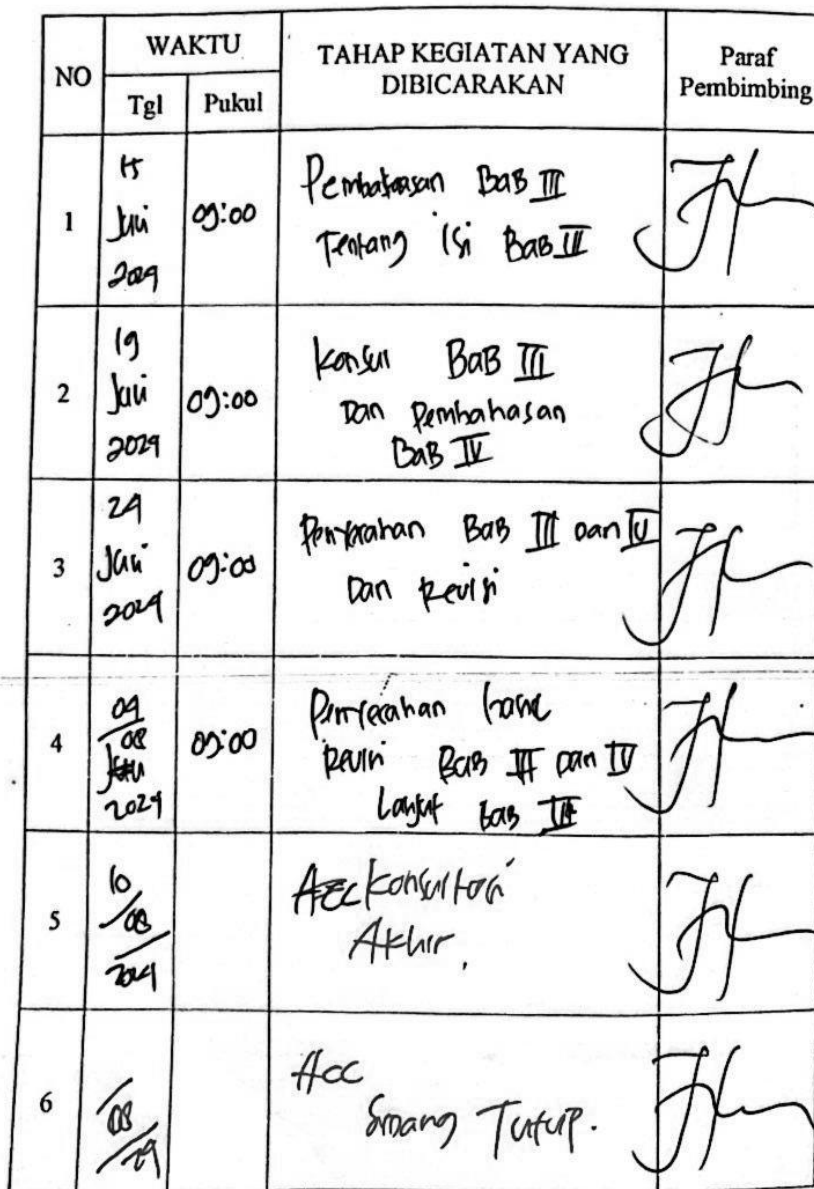 NO WAKTU TAHAP KEGIATAN YANG DIBICARAKAN Paraf Pembimbing
Tgl Pukul
1 15 Juli 2024 09:00 Pembahasan BaB III
Tentang isi BaB III
2 19 Juli 2024 09:00 Konsul BaB III
Dan Pembahasan
BaB IV
3 24 Juli 2024 09:00 Penyerahan BaB III Dan IV
Dan Revisi
4 04/08 2024 09:00 Penyerahan hasil
Revisi BaB III Dan IV
Lanjut BaB
5 10/08/2024 Acc Konsultasi
Akhir.
6 /08/24 Acc
Sidang Tutup.